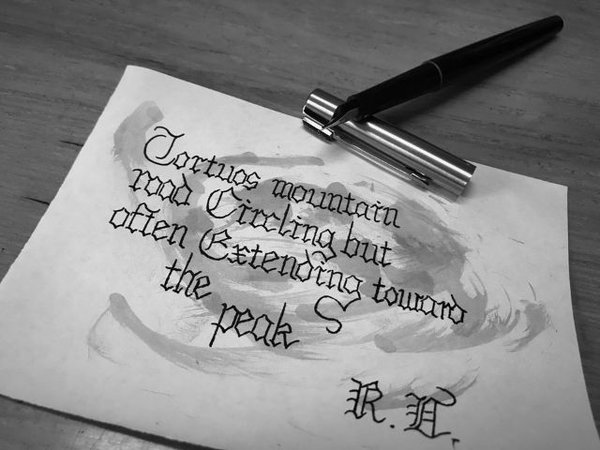 Tortuos mountain
road Circling but
often Extending toward
the peak S
R.H.